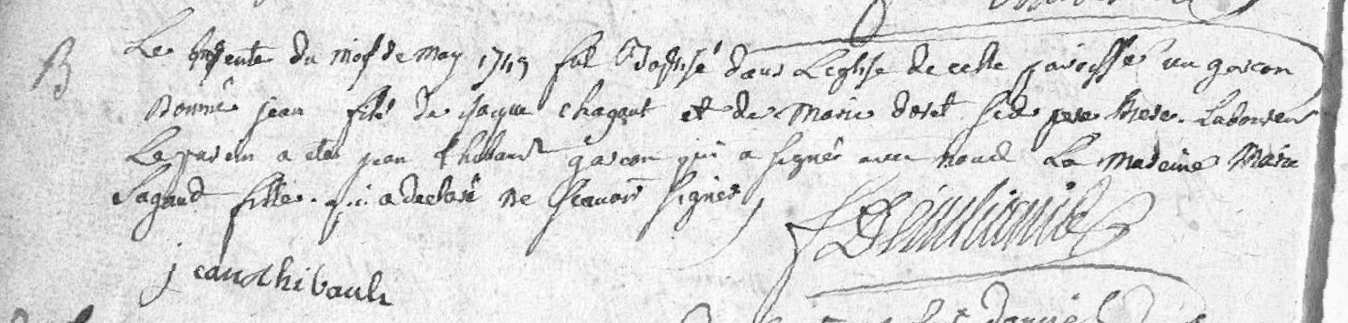 B
Le trente du mois de may 1749 fut Baptisé dans Leglise de cette paroisse un garcon
Nommé jean fils de jaque chagaut et de Marie doret sed pere mere. Laboureur
Le parain a ete jean thibaut garcon qui a signé avec nous La Mareine Marie
Sagaud fille. qui a declaré ne scavoir signer
jean thibault